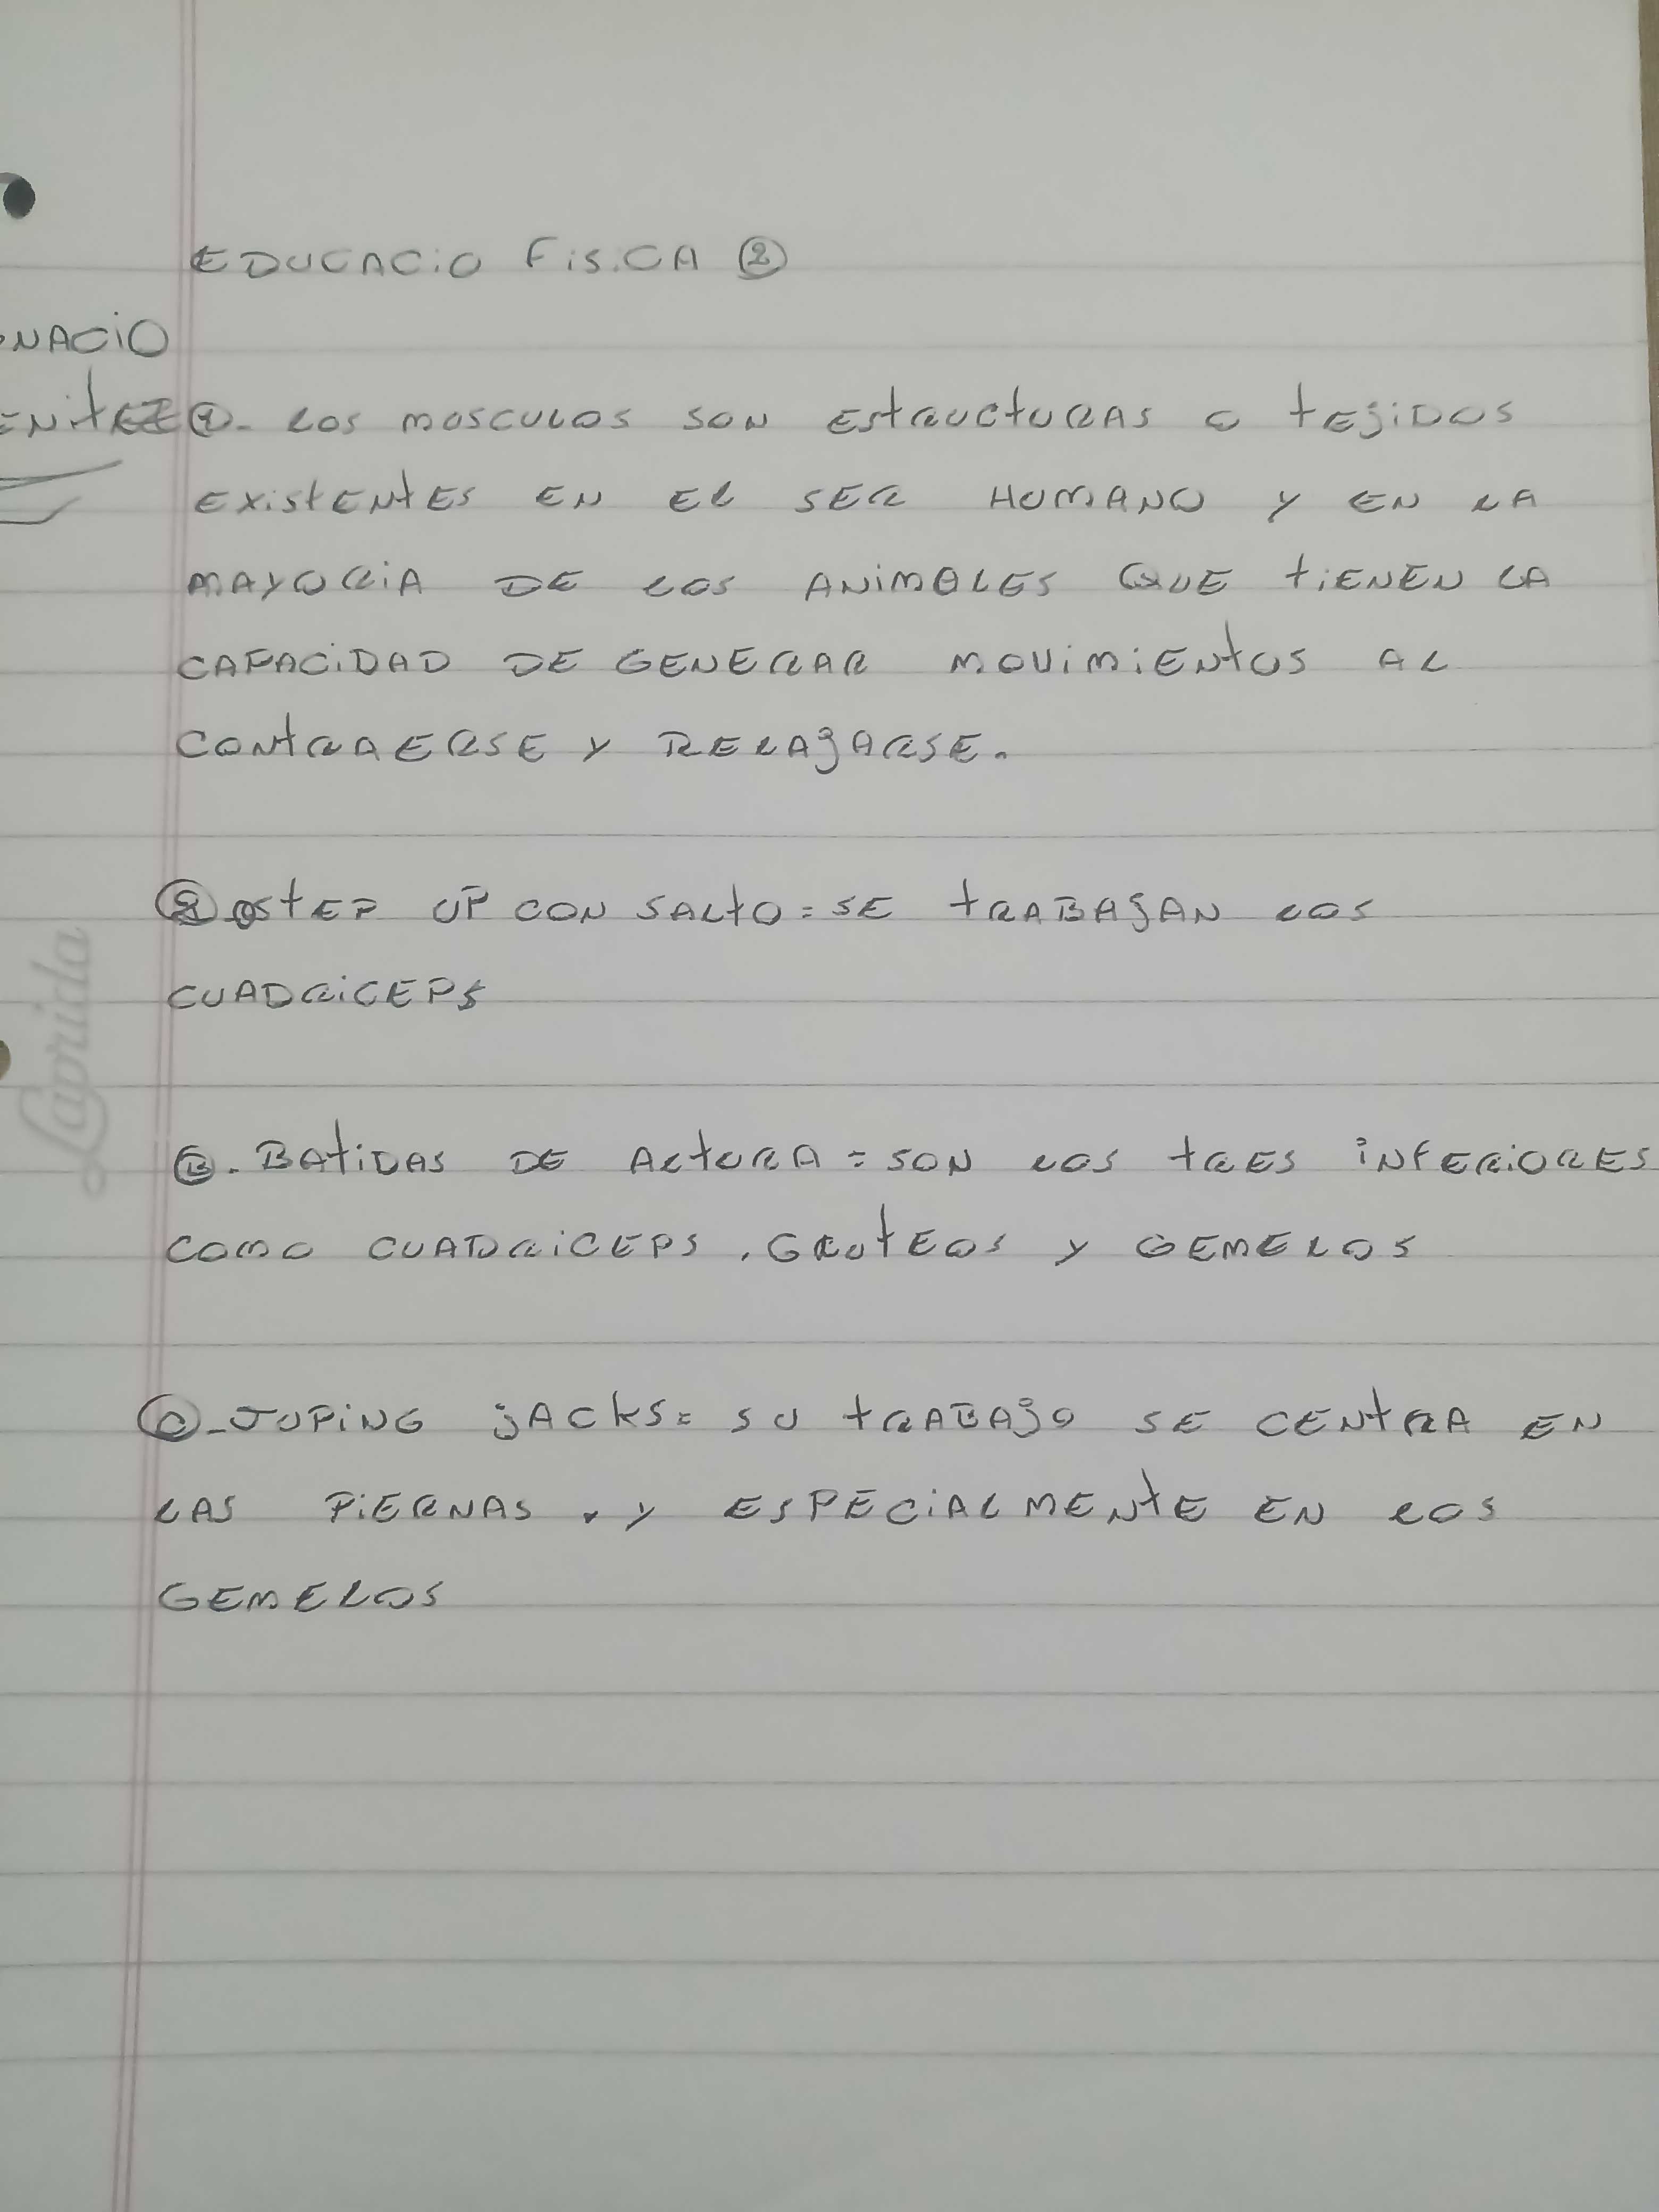 EDUCACIO FISICA ②
NACIO
ENITEZ
①- LOS MOSCULOS SON ESTRUCTURAS O TEJIDOS
EXISTENTES EN EL SER HUMANO Y EN LA
MAYORIA DE LOS ANIMALES QUE TIENEN LA
CAPACIDAD DE GENERAR MOVIMIENTOS AL
CONTRAERSE Y RELAJARSE.
② STEP UP CON SALTO = SE TRABAJAN LOS
CUADRICEPS
Ⓑ. BATIDAS DE ALTURA = SON LOS TRES INFERIORES
COMO CUADRICEPS, GLUTEOS Y GEMELOS
Ⓒ- JUPING JACKS = SU TRABAJO SE CENTRA EN
LAS PIERNAS, Y ESPECIALMENTE EN LOS
GEMELOS
Laprida